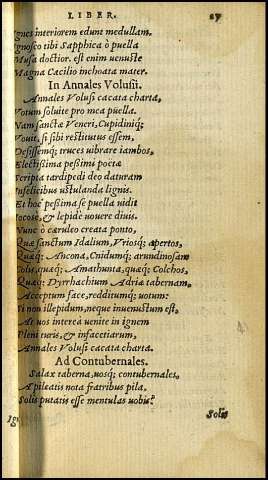 LIBER. 17
Ignes interiorem edunt medullam.
Ignosco tibi Sapphica ò puella
Musa doctior. est enim uenuste
Magna Cacilio inchoata mater.
In Annales Volusii.
Annales Volusi cacata charta,
Votum soluite pro mea puella.
Nam sanctæ Veneri, Cupidiniq;
Vouit, si sibi restitutus essem,
Desissemq; truces uibrare iambos,
Electissima pessimi poetæ
Scripta tardipedi deo daturam
Infelicibus ustulanda lignis.
Et hoc pessima se puella uidit
Iocose, & lepide uouere diuis.
Nunc ò cæruleo creata ponto,
Quæ sanctum Idalium, Vriosq; apertos,
Quæq; Ancona, Cnidumq; arundinosam
Colis, quæq; Amathunta, quæq; Colchos,
Quæq; Dyrrhachium Adriæ tabernam,
Acceptum face, redditumq; uotum:
Si non illepidum, neque inuenustum est,
At uos interea uenite in ignem
Pleni ruris, & infacetiarum,
Annales Volusi cacata charta.
Ad Contubernales.
Salax taberna, uosq; contubernales,
A pileatis nota fratribus pila,
Solis putatis esse mentulas uobis?
Solis